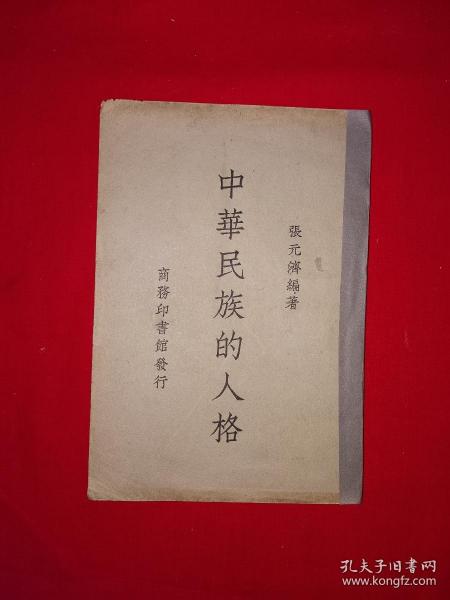 張元濟編著
中華民族的人格
商務印書館發行
孔夫子旧书网
www.kongfz.com